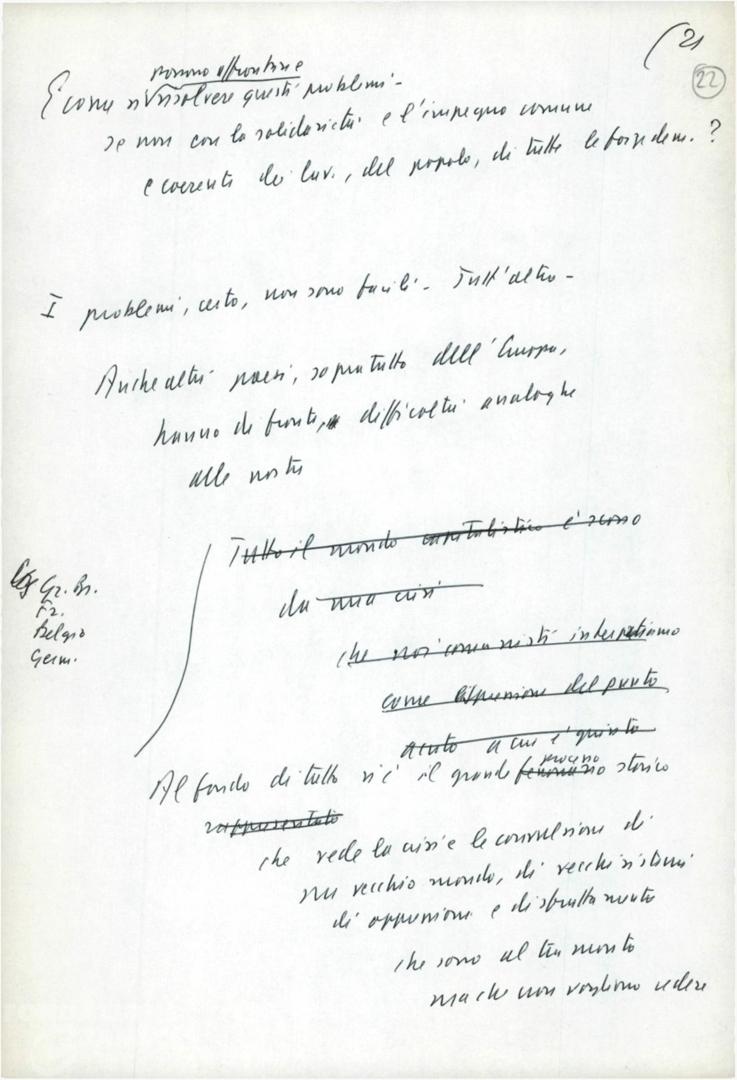 (21
22
possono affrontare
E come si risolvere questi problemi -
se non con la solidarietà e l'impegno comune
e coerente dei lav., del popolo, di tutte le forze dem. ?
I problemi, certo, non sono facili - Tutt'altro -
Anche altri paesi, sopratutto dell'Europa,
hanno di fronte, difficoltà analoghe
alle nostre
Tutto il mondo capitalistico è scosso
da una crisi
Gr. Br.
Fr.
Belgio
Germ.
che noi comunisti interpretiamo
come espressione del punto
acuto a cui è giunto
processo
Al fondo di tutto vi è il grande fenomeno storico
rappresentato
che vede la crisi e le convulsioni di
un vecchio mondo, di vecchi sistemi
di oppressione e di sfruttamento
che sono al tramonto
ma che non vogliono cedere